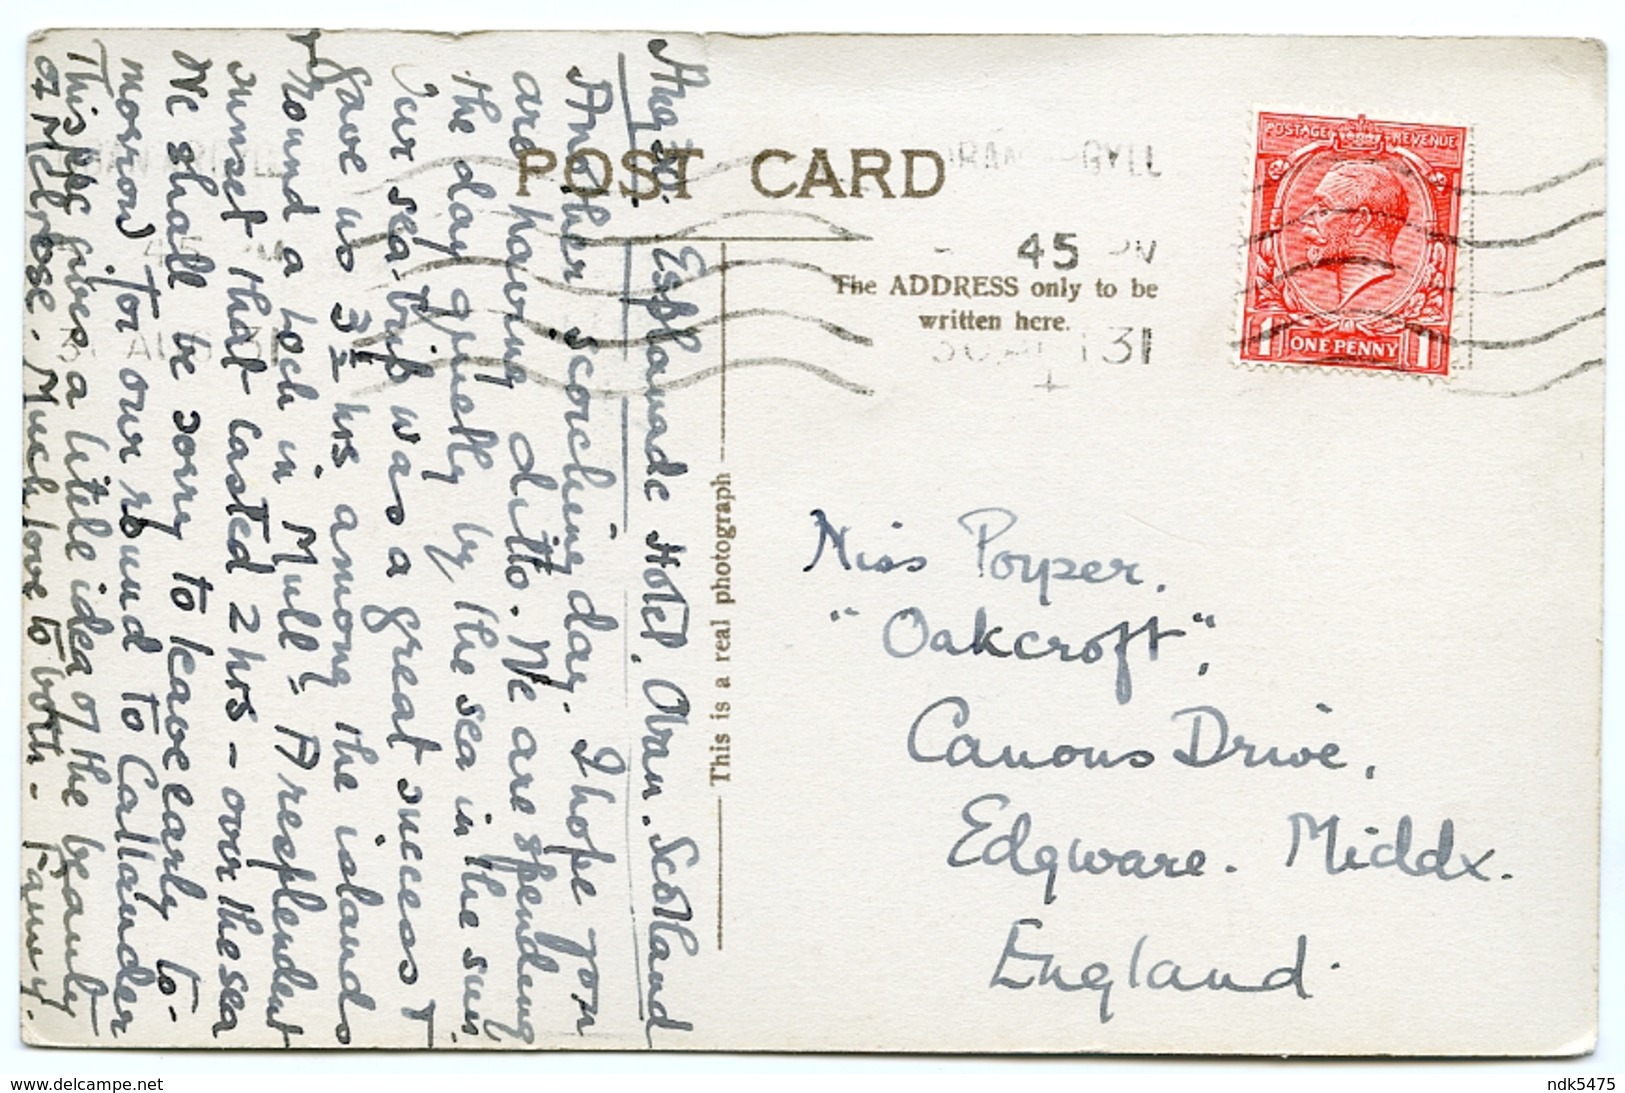 Aug 30. Esplanade Hotel. Oban. Scotland
Another scorching day. I hope you
are having ditto. We are spending
the day quietly by the sea in the sun.
Our sea-trip was a great success &
gave us 3½ hrs among the islands
round a loch in Mull - A resplendent
sunset that lasted 2 hrs - over the sea
We shall be sorry to leave early to-
morrow for our round to Callander
This gives a little idea of the beauty
of Melrose. Much love to both - Fanny.
POST CARD
The ADDRESS only to be
written here.
This is a real photograph
ARGYLL
45 PM
31
POSTAGE REVENUE
1 ONE PENNY 1
Miss Poyser.
"Oakcroft",
Canons Drive,
Edgware. Middx.
England.
www.delcampe.net
ndk5475